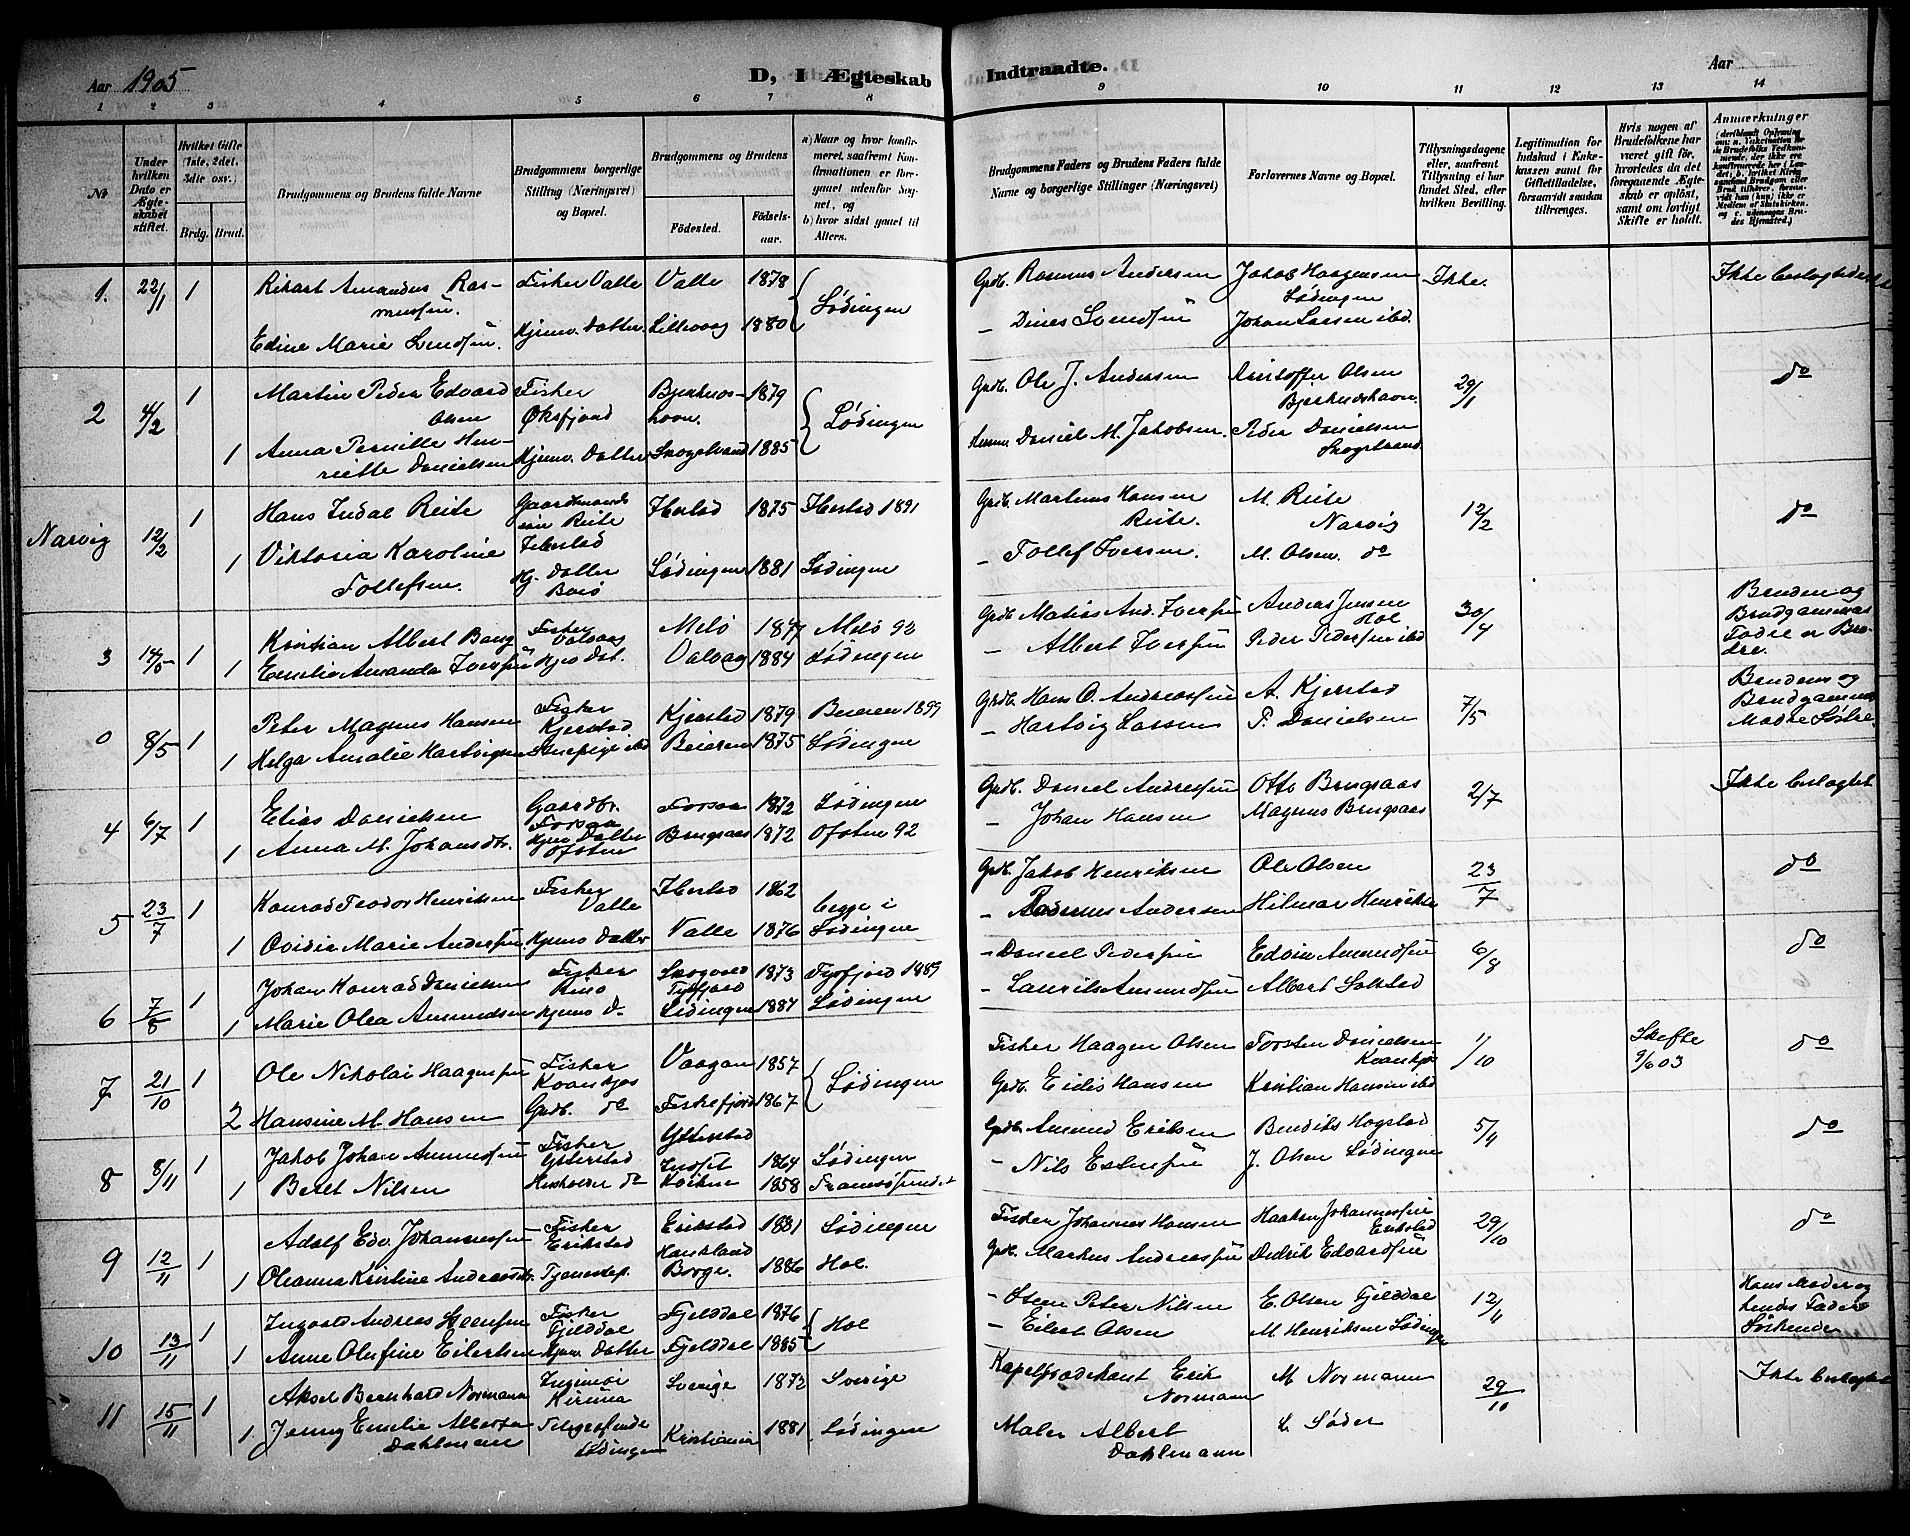 Aar 1905
D, I Ægteskab
Indtraadte.
Aar
1 2 3 4 5 6 7 8 9 10 11 12 13 14
No
Under hvilken Dato er Ægteskabet stiftet.
Hvilket Gifte (1ste, 2det, 3die osv.)
Brdg. Brud.
Brudgommens og Brudens fulde Navne
Brudgommens borgerlige Stilling (Næringsvei) og Bopæl.
Brudgommens og Brudens
Fødested.
Fødselsaar.
a) Naar og hvor konfirmeret, saafremt Konfirmationen er foregaaet udenfor Sognet, og
b) hvor sidst gaaet til Alters.
Brudgommens Faders og Brudens Faders fulde Navne og borgerlige Stillinger (Næringsvei)
Forlovernes Navne og Bopæl.
Tillysningsdagene eller, saafremt Tillysning ei har fundet Sted, efter hvilken Bevilling.
Legitimation for Indskud i Enkekassen samt for Giftetilladelse, forsaavidt saadan tiltrænges.
Hvis nogen af Brudefolkene har været gift før, hvorledes da det foregaaende Ægteskab er opløst, samt om lovligt Skifte er holdt.
Anmærkninger
1. 22/1 1 Rikart Amandus Rasmussen. Fisker Valle Valle 1878 Lødingen Grdb. Rasmus Andersen Jakob Haagensen Lødingen Ikke.
Edine Marie Svendsen. Hjemv. Datter. Lillevaag 1880 – Dines Svendsen Johan Larsen ibd.
2 4/2 1 Martin Peder Edvard Olsen Fisker Øksfjord 1879 Lødingen Grdb. Ole J. Andersen Kristoffer Olsen 29/1 do
1 Anna Pernille Henriette Danielsen Hjemv. Datter Skogstrand 1885 Daniel M. Jakobsen. Peder Danielsen Skogstrand
Narvig 12/2 1 Hans Indal Reite Gaardmands Reite Ibestad Ibestad 1875 Ibestad 1891 Grdb. Martinus Hansen Reite. M. Reite Narvig 12/2 do
1 Viktoria Karoline Tollefsen. Hj. Datter Barø Lødingen 1881 Lødingen – Tollef Iversen. M. Olsen do
3 14/5 1 Kristian Albert Bang Fisker Valvaag Melø Melø 92 Grdb. Matias And. Iversen Andreas Jensen Hol 30/4 Bruden og Brudgommens Fædre er Brødre.
1 Emelie Amanda Iversen Hjev Dat. Valvag 1884 Lødingen – Albert Iversen Peder Pedersen ibd
0 8/5 1 Peter Magnus Hansen Fisker Kjerstad Kjerstad 1879 Beiaren 1899 Grdb. Hans O. Andreassen A. Kjerstad 7/5 Brudens og Brudgommens Mødre Søstre.
1 Helga Amalie Hartvigsen ibd Beiaren 1875 Lødingen – Hartvig Larsen P. Danielsen
4 6/7 1 Elias Danielsen Gaardbr. Forsaa Forsaa 1872 Lødingen Grdb. Daniel Andreassen Otto Brugsaas 2/7 Ikke beslægtet
1 Anna M. Johansdtr. Hjev Datter Ofoten Brugsaas 1872 Ofoten 92 – Johan Hansen Magnus Brugsaas
5 23/7 1 Konrad Teodor Henriksen Fisker Valle Ibestad 1862 begge i Lødingen Grdb. Jakob Henriksen Ole Olsen 23/7 do
1 Ovidie Marie Andersen. Hjemv Datter Valle 1876 – Rasmus Andersen Hilmar Henriksen
6 7/8 1 Johan Konrad Danielsen Fisker Rinø Tysfjord 1873 Tysfjord 1889 – Daniel Pedersen Edvin Amundsen 6/8 do
1 Marie Olea Amundsen Hjemv D– Lødingen 1884 Lødingen – Laurits Amundsen Albert
7 21/10 1 Ole Nikolai Haagensen Fisker Kvankjos Vaagan 1857 Lødingen Fisker Haagen Olsen Torsten Danielsen 1/10 Skifte 9/6 03 do
2 Hansine M. Hansen Grdb. do Fiskefjord 1867 Grdb. Eidis Hansen Kristian Hansen ibd
8 8/11 1 Jakob Johan Amundsen Fisker Ytterstad Ytterstad 1864 Lødingen Grdb. Amund Eriksen Bendiks Hogstad 5/11 do
1 Beret Nilsen Husholder. do 1858 Tromsøsundet – Nils Estensen J. Olsen Lødingen
9 12/11 1 Adolf Edv. Johannessen Fisker Erikstad Erikstad 1881 Lødingen Fisker Johannes Hansen Haakon Johannessen Erikstad 29/10 do
1 Oleanna Kristine Andreasdtr. Tjenestep. Haukland Borge. 1886 Hol. Grdb. Markus Andreassen Didrik Edvardsen
10 13/11 1 Ingvald Andreas Steensen Fisker Fjelddal Fjelddal 1876 Hol – Steen Peter Nilsen E. Olsen Fjelddal 12/11 Hans Moder og hendes Fader Søskende
1 Anne Olufine Eilertsen Hjemv Datter Fjelddal 1885 – Eilert Olsen M Henriksen Lødingen
11 15/11 1 Aksel Bernhard Normann Ingeniør Kiruna Sverige 1872 Sverige Erik Normann M Normann 29/10 Ikke beslægtet
1. Jenny Emelie Alberta Dahlmann Lødingen Kristiania 1881 Lødingen Maler Albert Dahlmann L Søder